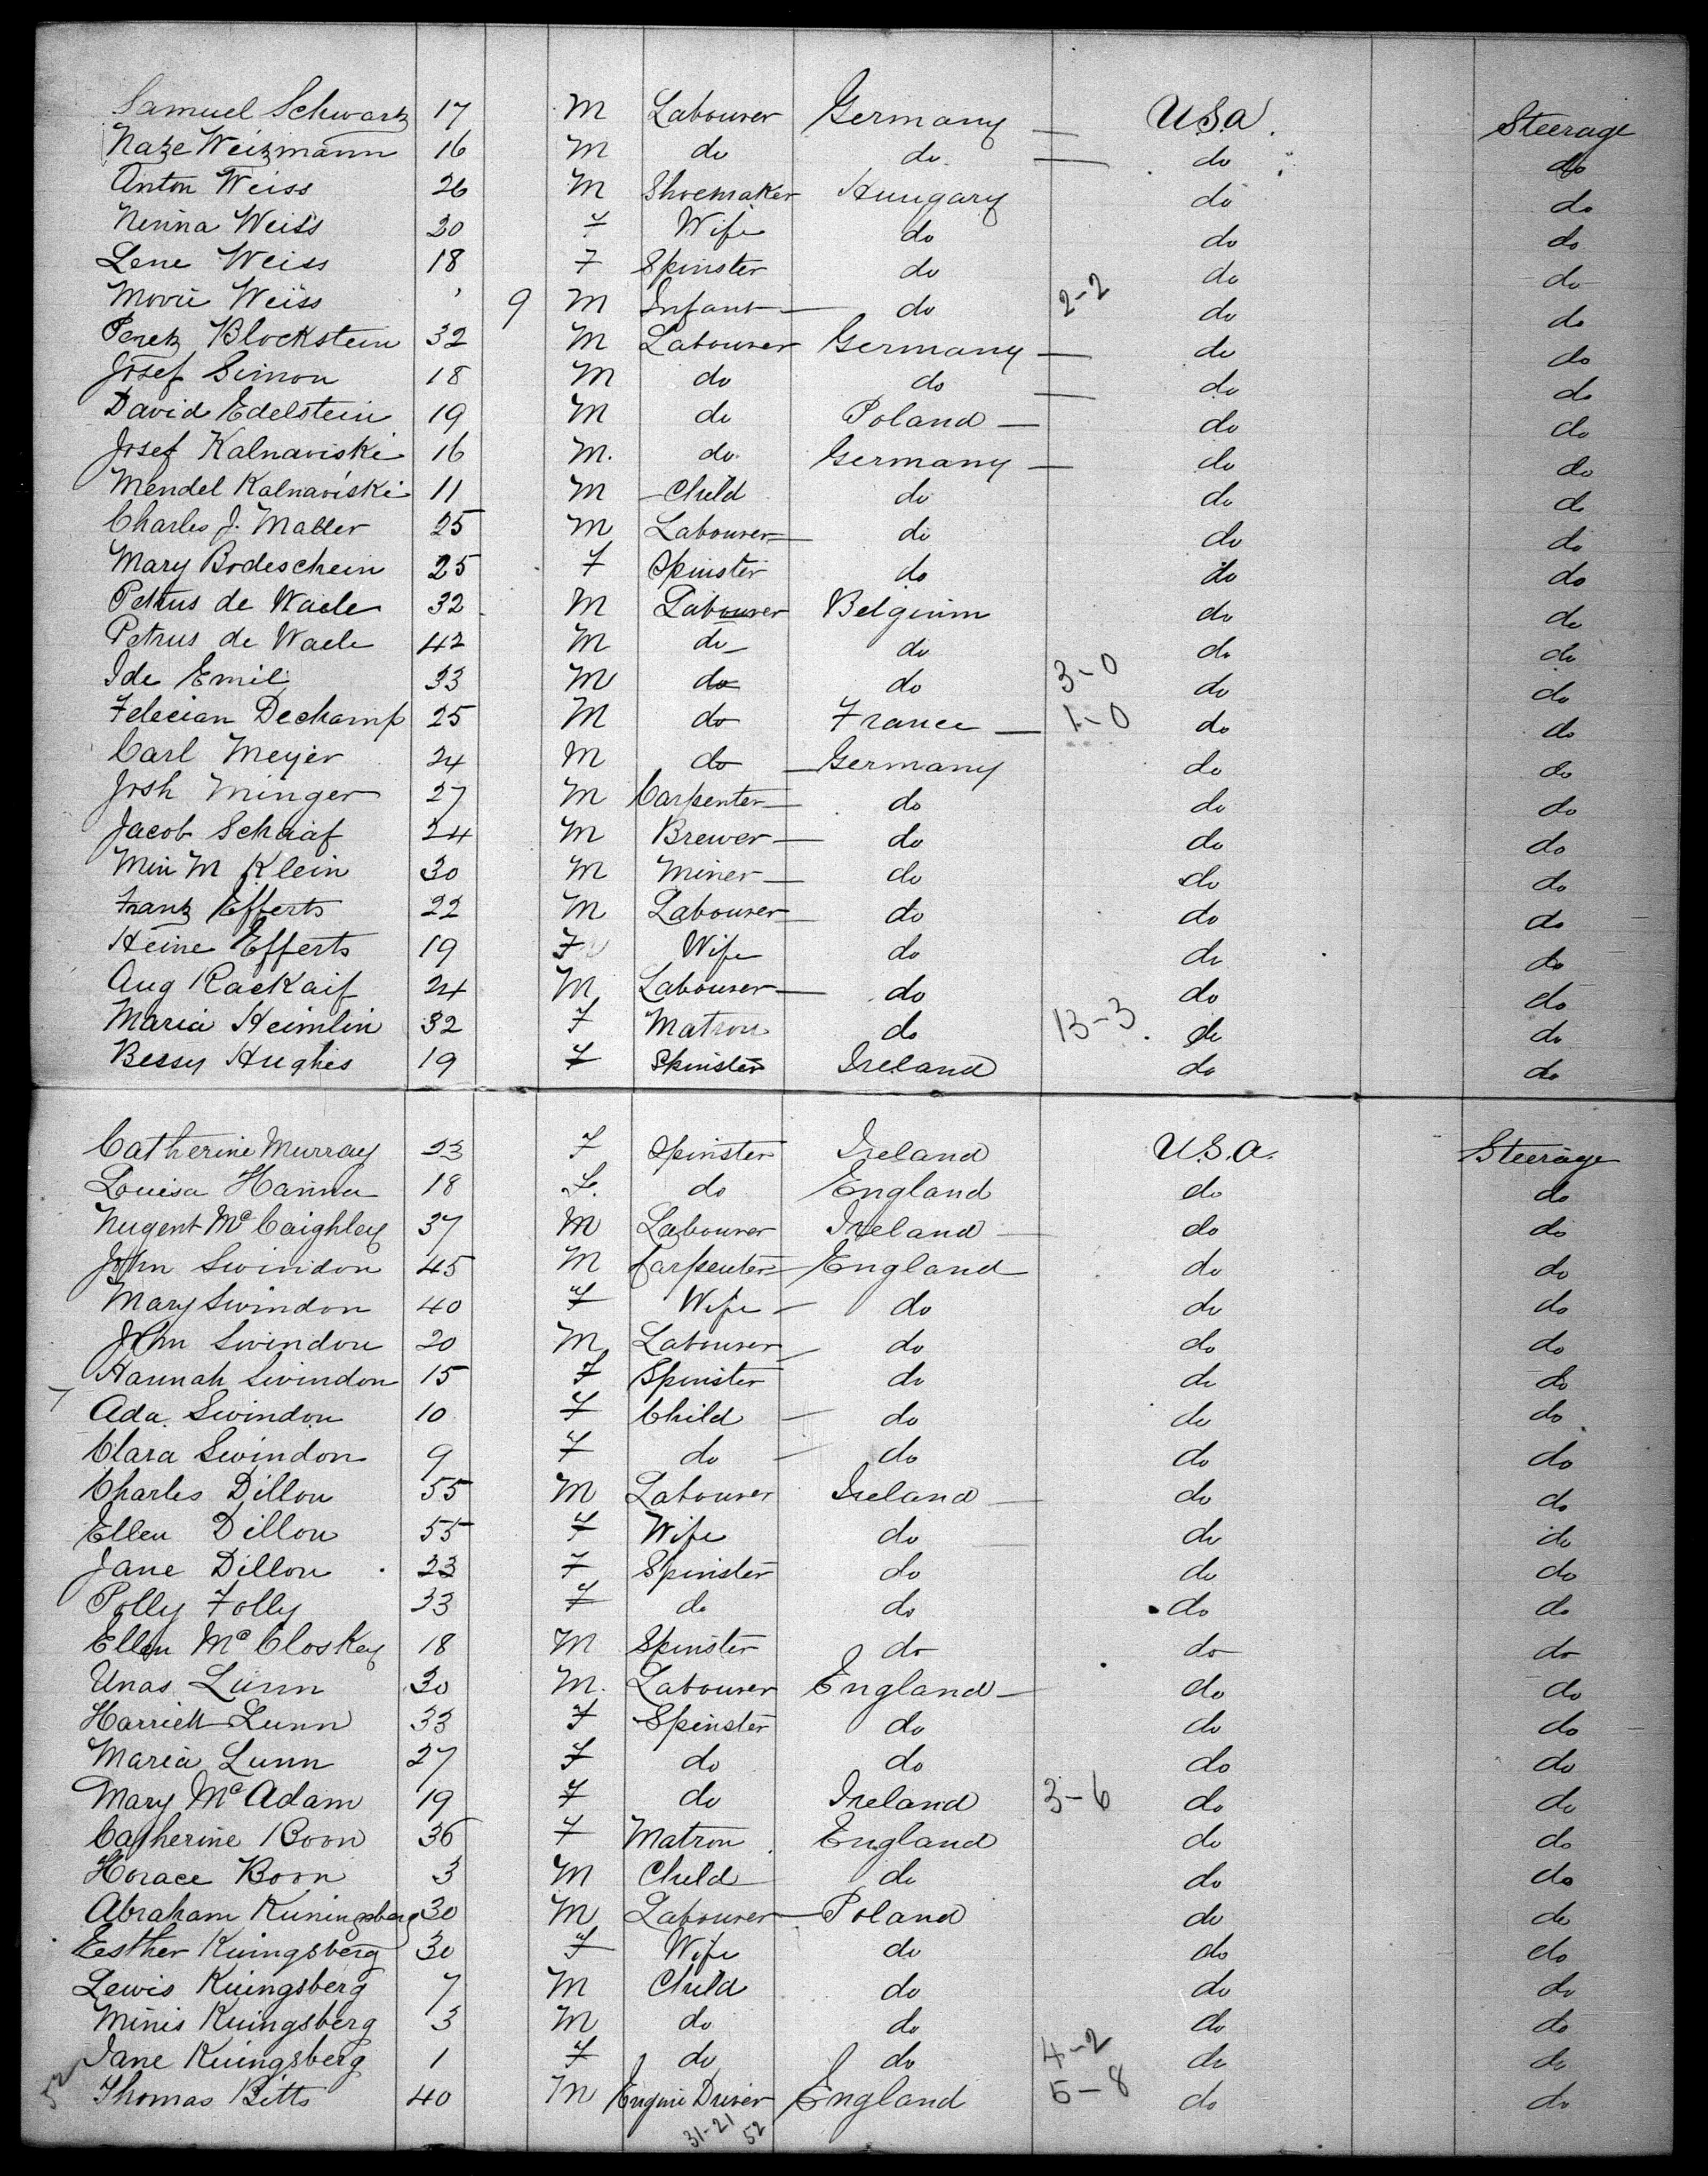 Samuel Schwartz 17 M Labourer Germany — U.S.A. Steerage
Natze Weizmann 16 M do do — do do
Anton Weiss 26 M Shoemaker Hungary do do
Nenna Weiss 20 F Wife do do do
Lene Weiss 18 F Spinster do do do
Weiss 9 M Infant — do 2-2 do do
Peretz Blockstein 32 M Labourer Germany — do do
Josef Simon 18 M do do — do do
David Edelstein 19 M do Poland — do do
Josef Kalnaviski 16 M. do Germany — do do
Mendel Kalnaviski 11 M Child do do do
Charles J. Matter 25 M Labourer — do do do
Mary Bodeschein 25 F Spinster do do do
Petrus de Waele 32 M Labourer Belgium do do
Petrus de Waele 42 M do do do do
Ide Emil 33 M do do 3-0 do do
Felecian Dechamp 25 M do France — 1-0 do do
Carl Meyer 24 M do — Germany do do
Josh Minger 27 M Carpenter — do do do
Jacob Schaaf 24 M Brewer — do do do
Min M Klein 30 M Miner — do do do
Franz Efferts 22 M Labourer — do do do
Heine Efferts 19 F Wife do do do
Aug Rackaif 24 M Labourer — do do do
Maria Heimlin 32 F Matron do 13-3 do do
Bessy Hughes 19 F Spinster Ireland do do
Catherine Murray 23 F Spinster Ireland U.S.A. Steerage
Louisa Hanna 18 F. do England do do
Nugent McCaighley 37 M Labourer Ireland — do do
John Swindon 45 M Carpenter — England do do
Mary Swindon 40 F Wife — do do do
John Swindon 20 M Labourer — do do do
Hannah Swindon 15 F Spinster do do do
7 Ada Swindon 10 F Child — do do do
Clara Swindon 9 F do — do do do
Charles Dillon 55 M Labourer Ireland — do do
Ellen Dillon 55 F Wife do do do
Jane Dillon 23 F Spinster do do do
Polly Folly 33 F do do do do
Ellen McCloskey 18 M Spinster do do do
Unas Lunn 30 M. Labourer England — do do
Harriett Lunn 33 F Spinster do do do
Maria Lunn 27 F do do do do
Mary McAdam 19 F do Ireland 3-6 do do
Catherine Boon 36 F Matron England do do
Horace Boon 3 M Child do do do
Abraham Kuningsberg 30 M Labourer — Poland do do
Eesther Kuingsberg 30 F Wife do do do
Lewis Kuingsberg 7 M Child do do do
Minis Kuingsberg 3 M do do do do
Jane Kuingsberg 1 F do do 4-2 do do
52 Thomas Bitts 40 M Engine Driver England 5-8 do do
31-21 52